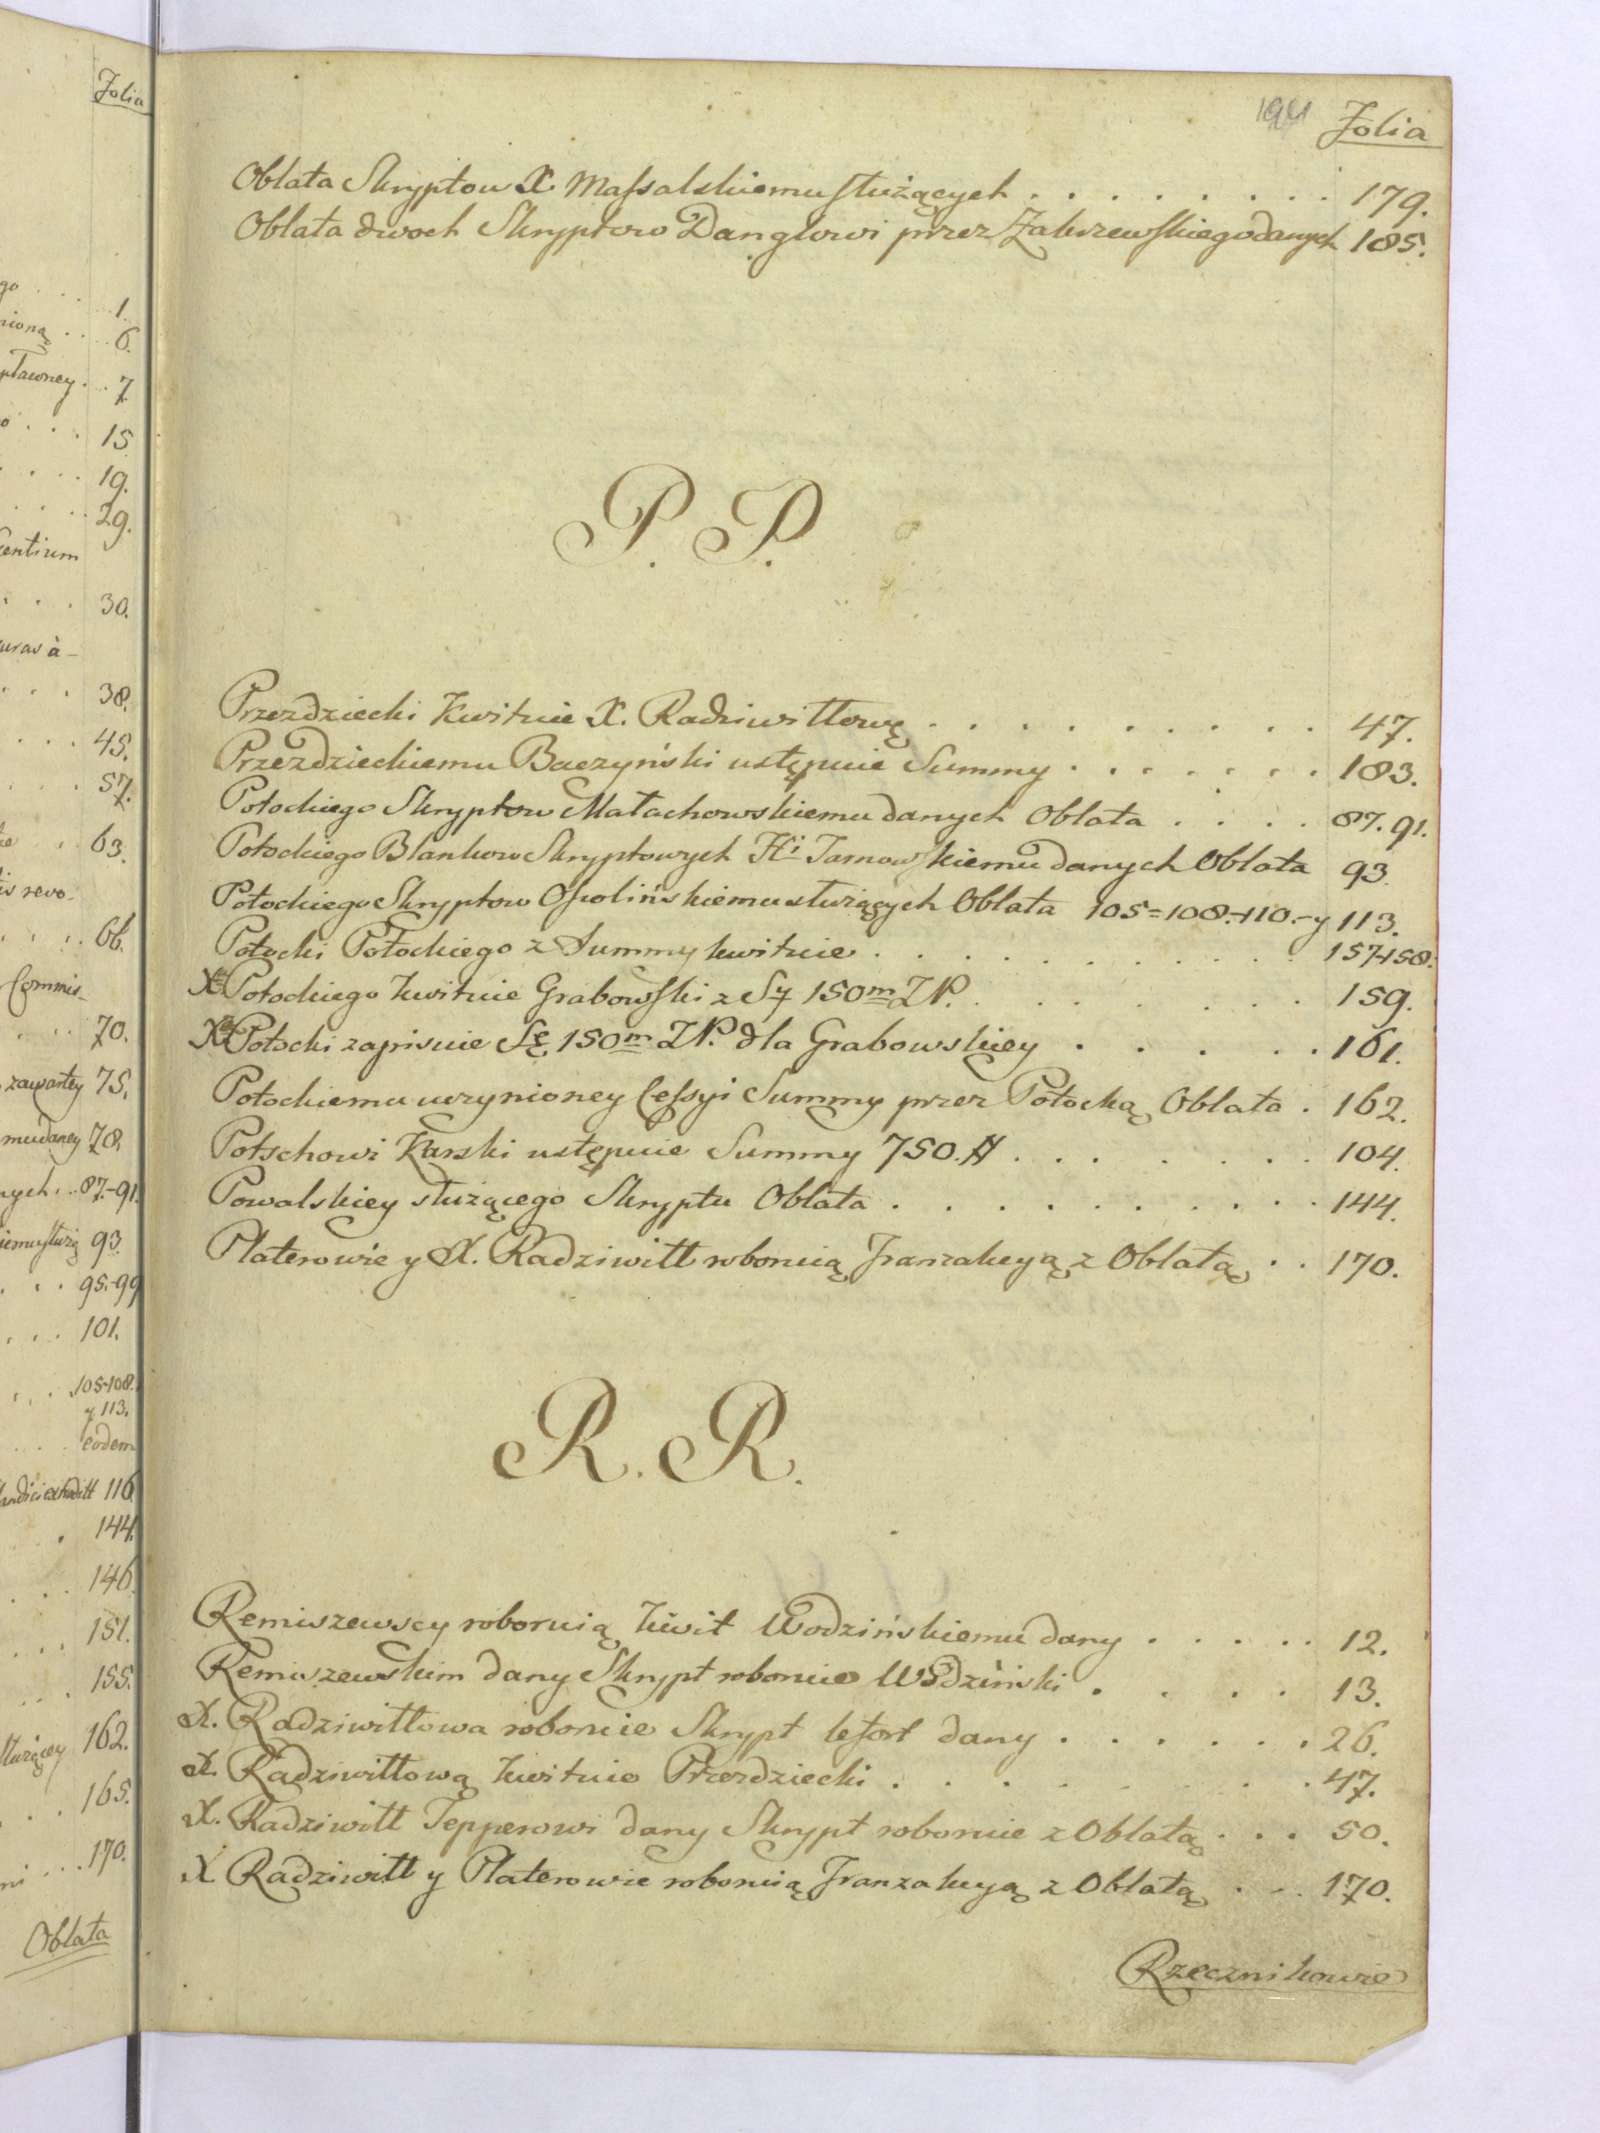 Folia
1.
6.
7
15
19.
29.
30.
38.
45.
57.
63.
66.
70.
75.
78.
87.-91.
93.
95.-99
101.
105-108.
y 113.
eodem
116
144.
146
151.
155.
162.
165.
170.
Oblata
194 Folia
Oblata Skryptow X. Massalskiemu służących . . . . . . . . 179.
Oblata dwoch Skryptow Danglowi przez Zakrzewskiego danych 185.
P. P.
Przezdziecki Kwituie X. Radziwiłłową . . . . . . . . . 47.
Przezdzieckiemu Baczyński ustępuie Summy . . . . . . . 183.
Potockiego Skryptow Małachowskiemu danych Oblata . . . . 87. 91.
Potockiego Blankow Skryptowych Hi Tarnowskiemu danych Oblata 93.
Potockiego Skryptow Ossolińskiemu służących Oblata 105=108.-110.-y 113.
Potocki Potockiego z Summy kwituie . . . . . . . . . 157-158.
X Potockiego kwituie Grabowski z Sy 150m ZP. . . . . . . . 159.
X Potocki zapisuie Sę 150m ZP. dla Grabowskiey . . . . . 161.
Potockiemu uczynioney Cessyi Summy przez Potocką Oblata . 162.
Potschowi Karski ustępuie Summy 750. # . . . . . . . . 104.
Powalskiey służącego Skryptu Oblata . . . . . . . . . 144.
Platerowie y X. Radziwiłł roboruią Tranzakcyą z Oblatą . . 170.
R. R.
Remiszewscy roboruią kwit Wodzińskiemu dany . . . . . 12.
Remiszewskim dany Skrypt roboruie Wodziński . . . . 13.
X. Radziwiłłowa roboruie Skrypt lefort dany . . . . . . . 26.
X. Radziwiłłową kwituie Przezdziecki . . . . . . . . 47.
X. Radziwiłł Tepperowi dany Skrypt roboruie z Oblatą . . . 50.
X Radziwiłł y Platerowie roboruią Tranzakcyą z Oblatą . . . 170.
Rzecznikowie